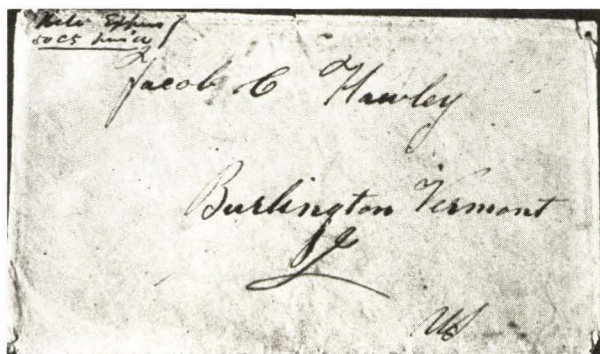 50 Cts
Jacob C Hawley
Burlington Vermont
US